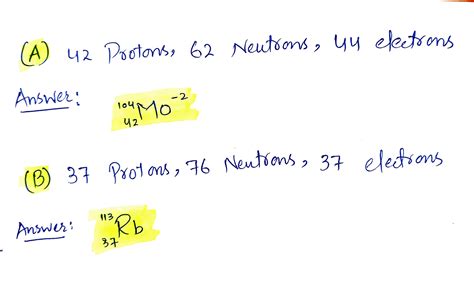 (A) 42 Protons, 62 Neutrons, 44 electrons
Answer: ¹⁰⁴₄₂Mo⁻²
(B) 37 Protons, 76 Neutrons, 37 electrons
Answer: ¹¹³₃₇Rb